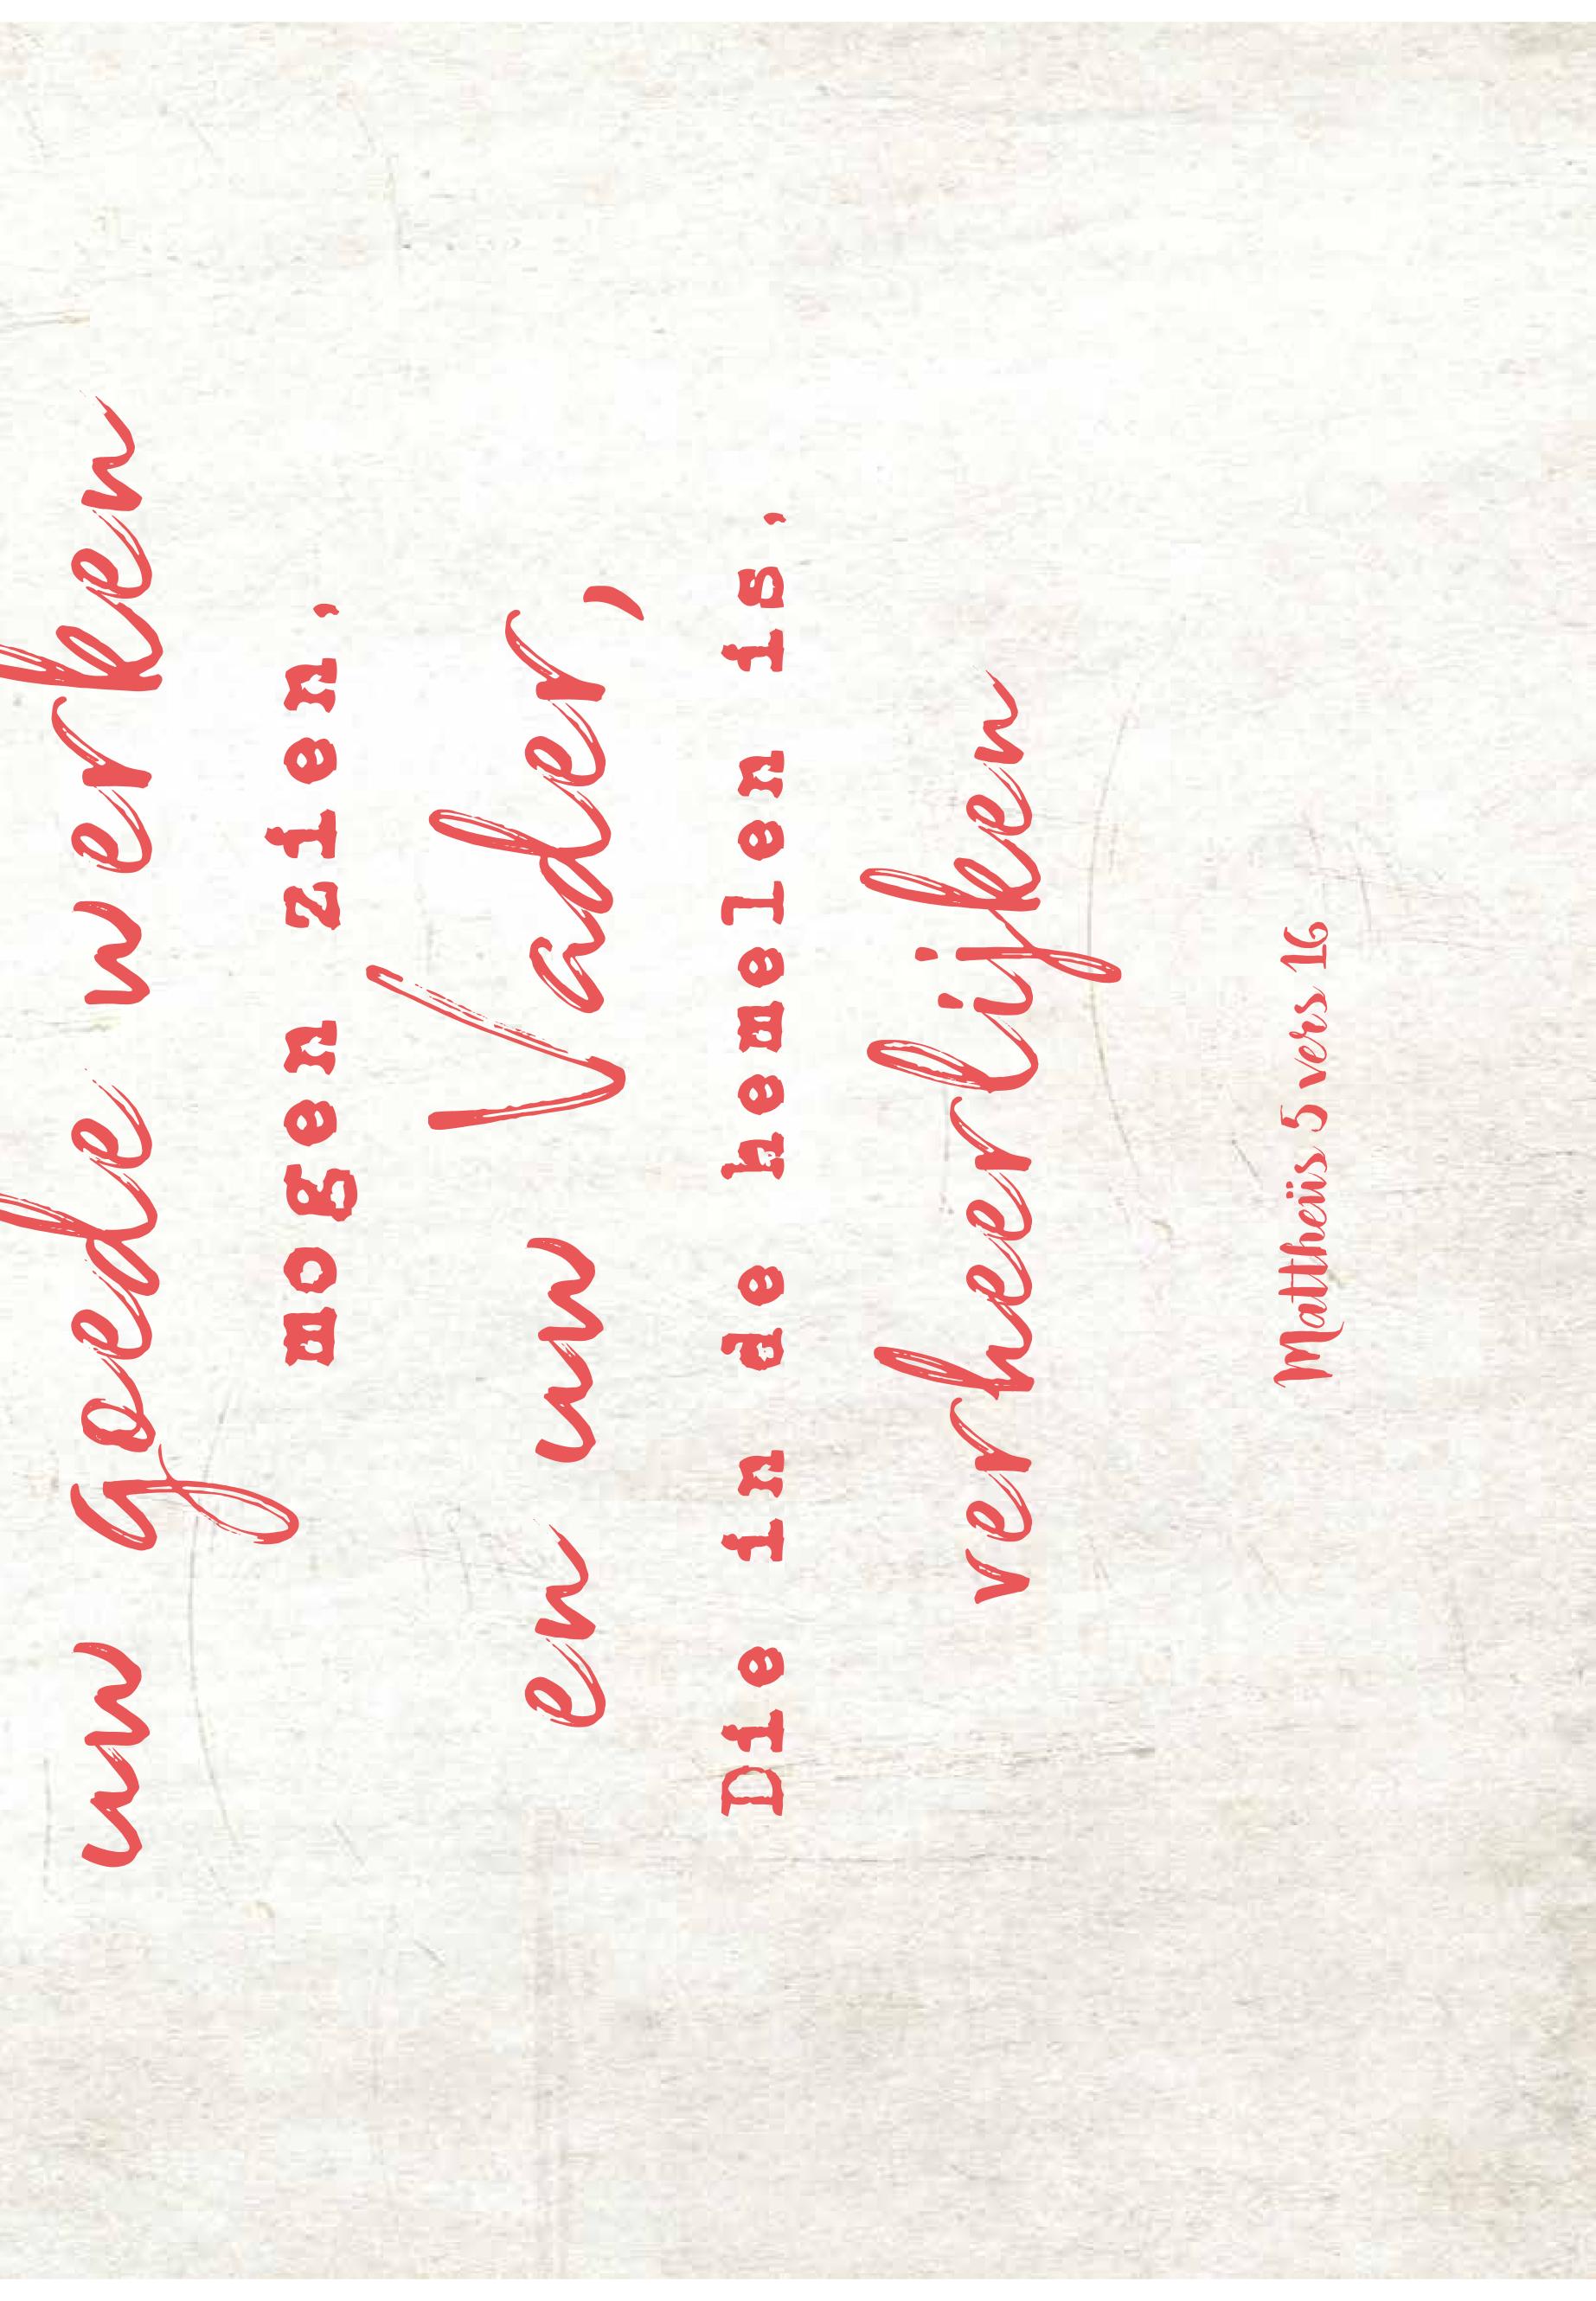 uw goede werken
mogen zien,
en uw Vader,
Die in de hemelen is,
verheerlijken
Mattheüs 5 vers 16